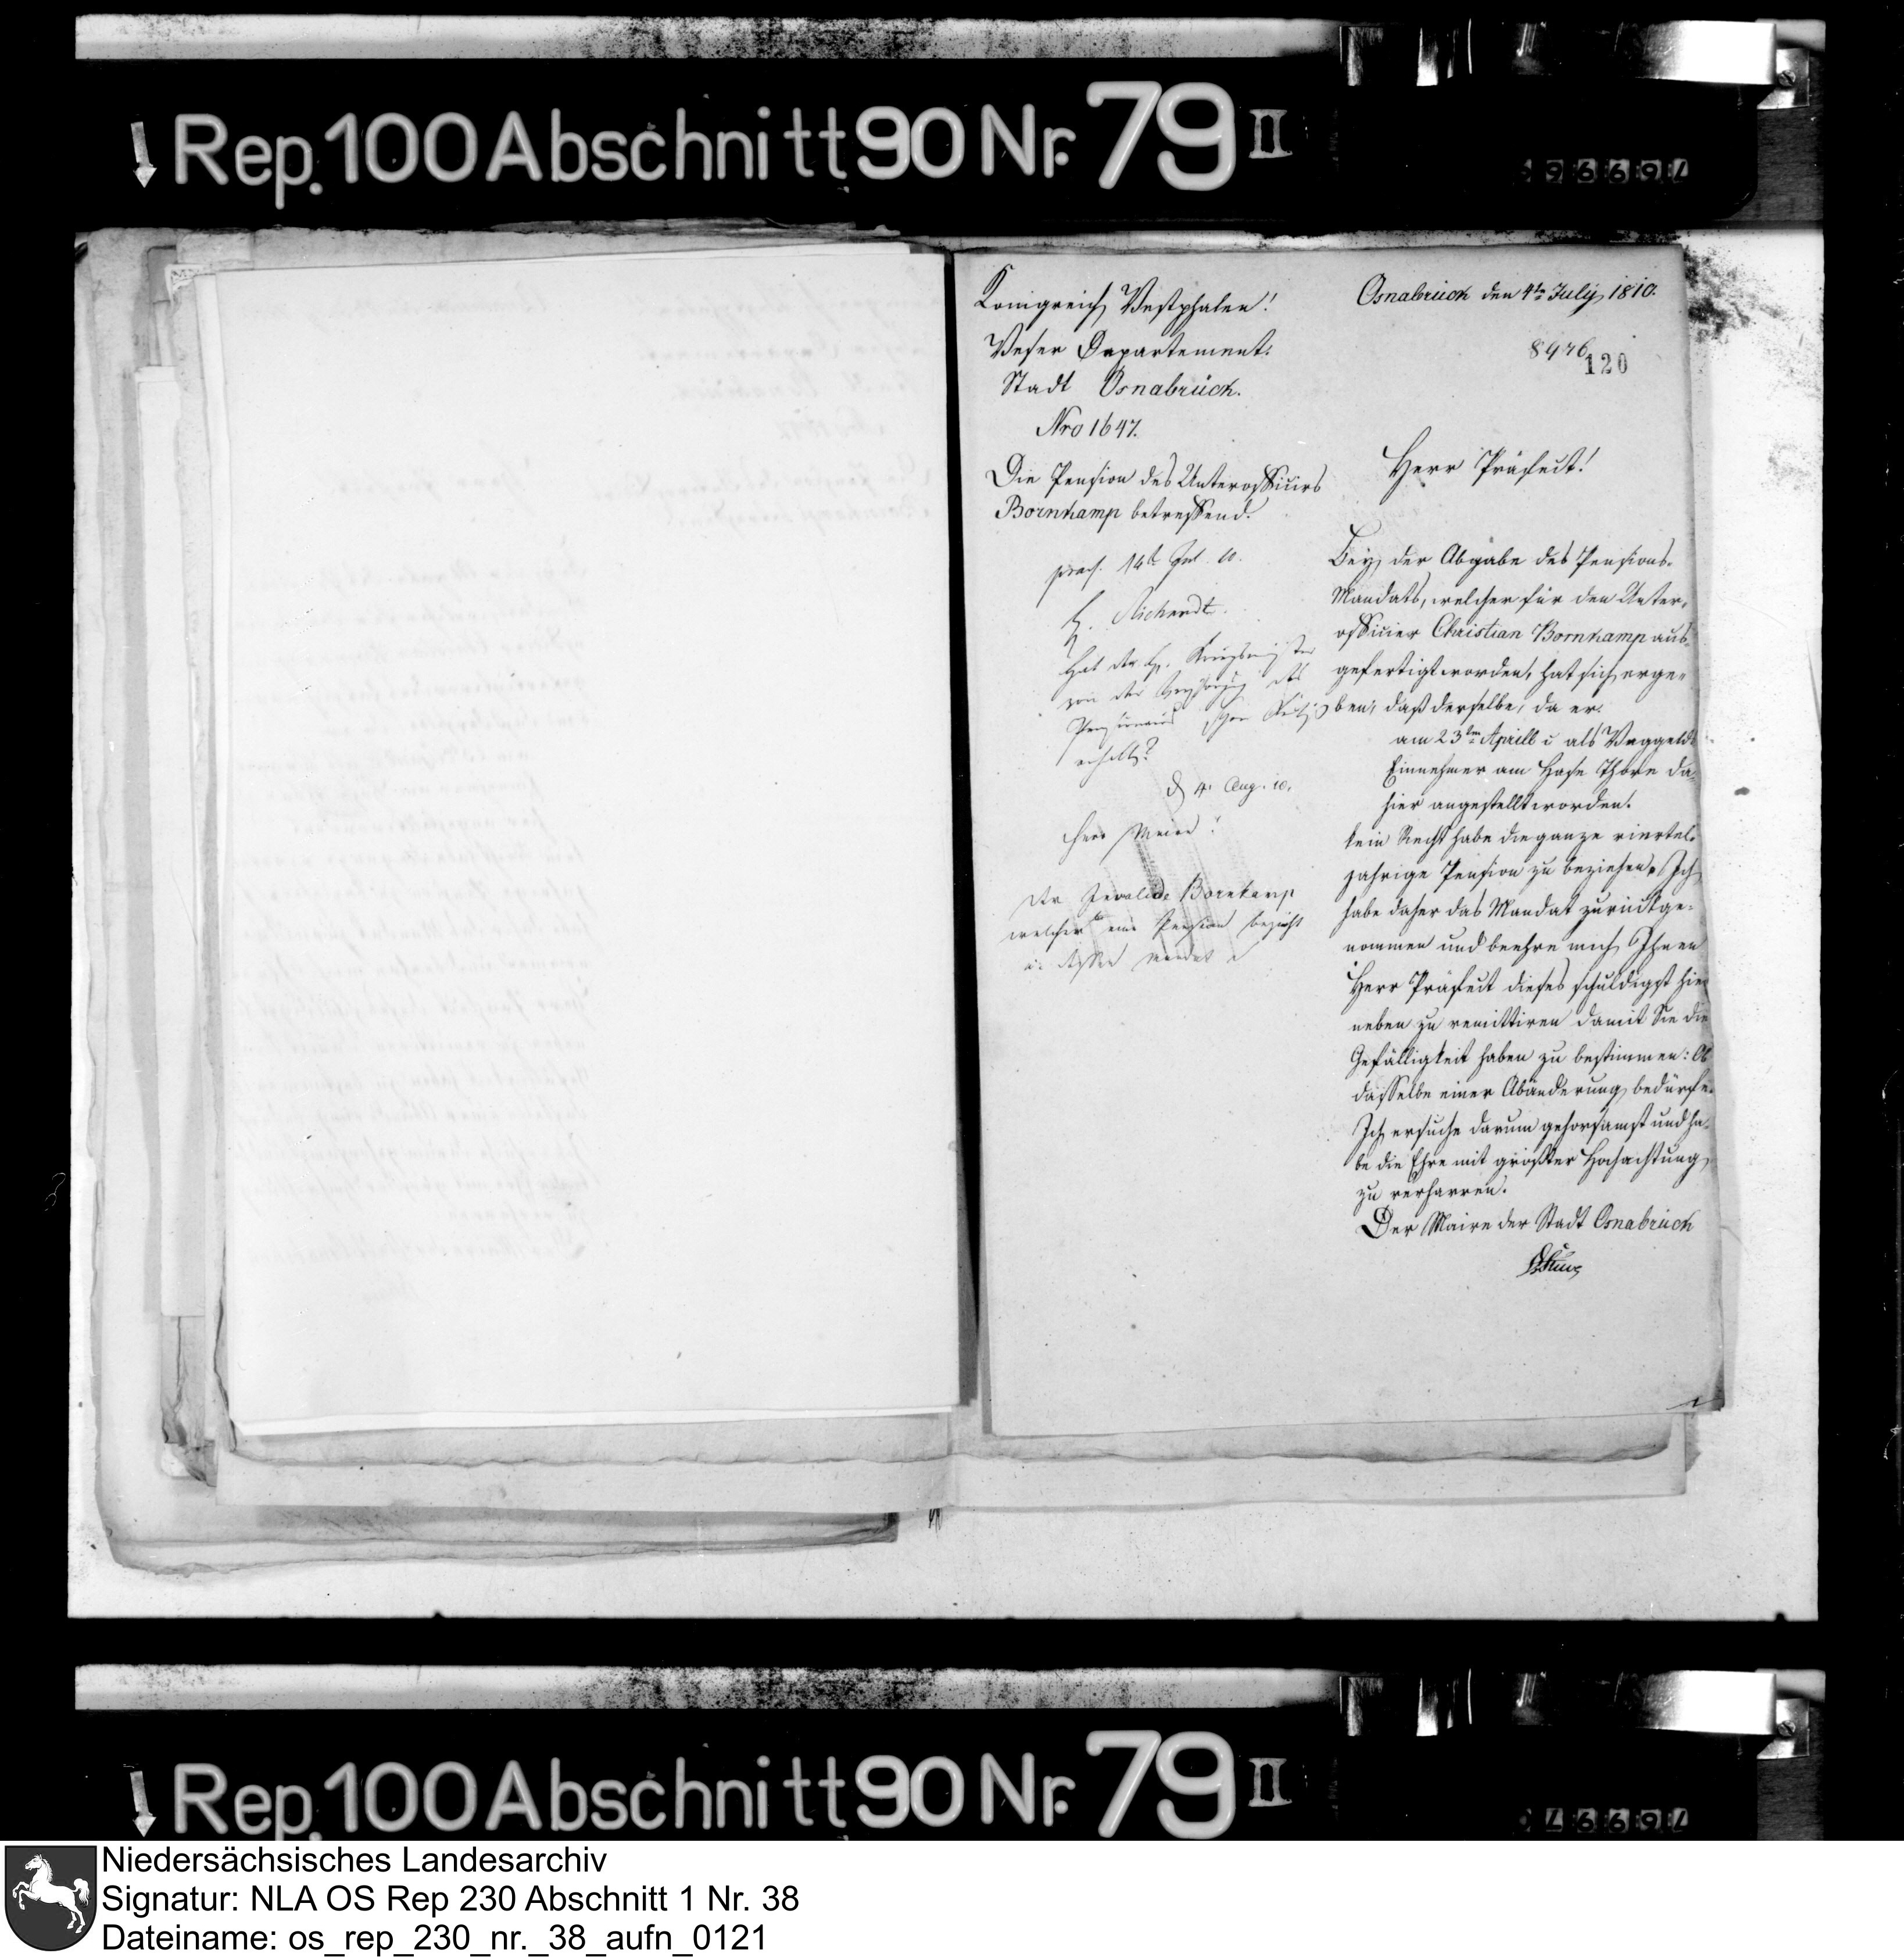 Rep. 100 Abschnitt 90 Nr. 79 II
76996
Königreich Westphalen!
Weser Departement.
Stadt Osnabrück.
Nro 1647.
Die Pension des Unterofficiers
Bornkamp betreffend.
praes. 14t Jul. 10.
H. Richardt.
Hat der H. Kriegsminister
von der des
Pensionairs schon
erhalten?
d 4. Aug. 10.
Herr Maire!
Der Invalide Bornkamp
welcher eine Pension bezieht
Osnabrück den 4ten July 1810.
8476
120
Herr Präfect!
Bey der Abgabe des Pensions-
Mandats, welcher für den Unter-
officier Christian Bornkamp aus-
gefertigt worden, hat sich erge-
ben, daß derselbe, da er
am 23ten Aprill c als Weggeld-
Einnehmer am Hase Thore da-
hier angestellt worden.
kein Recht habe die ganze viertel-
jahrige Pension zu beziehen. Ich
habe daher das Mandat zurückge-
nommen und beehre mich Ihnen
Herr Präfect dieses schuldigst hie-
neben zu remittiren damit Sie die
Gefälligkeit haben zu bestimmen: Ob
dasselbe einer Abänderung bedürfe.
Ich ersuche darum gehorsamst und ha-
be die Ehre mit größter Hochachtung
zu verharren.
Der Maire der Stadt Osnabrück
Rep. 100 Abschnitt 90 Nr. 79 II
76997
Niedersächsisches Landesarchiv
Signatur: NLA OS Rep 230 Abschnitt 1 Nr. 38
Dateiname: os_rep_230_nr._38_aufn_0121